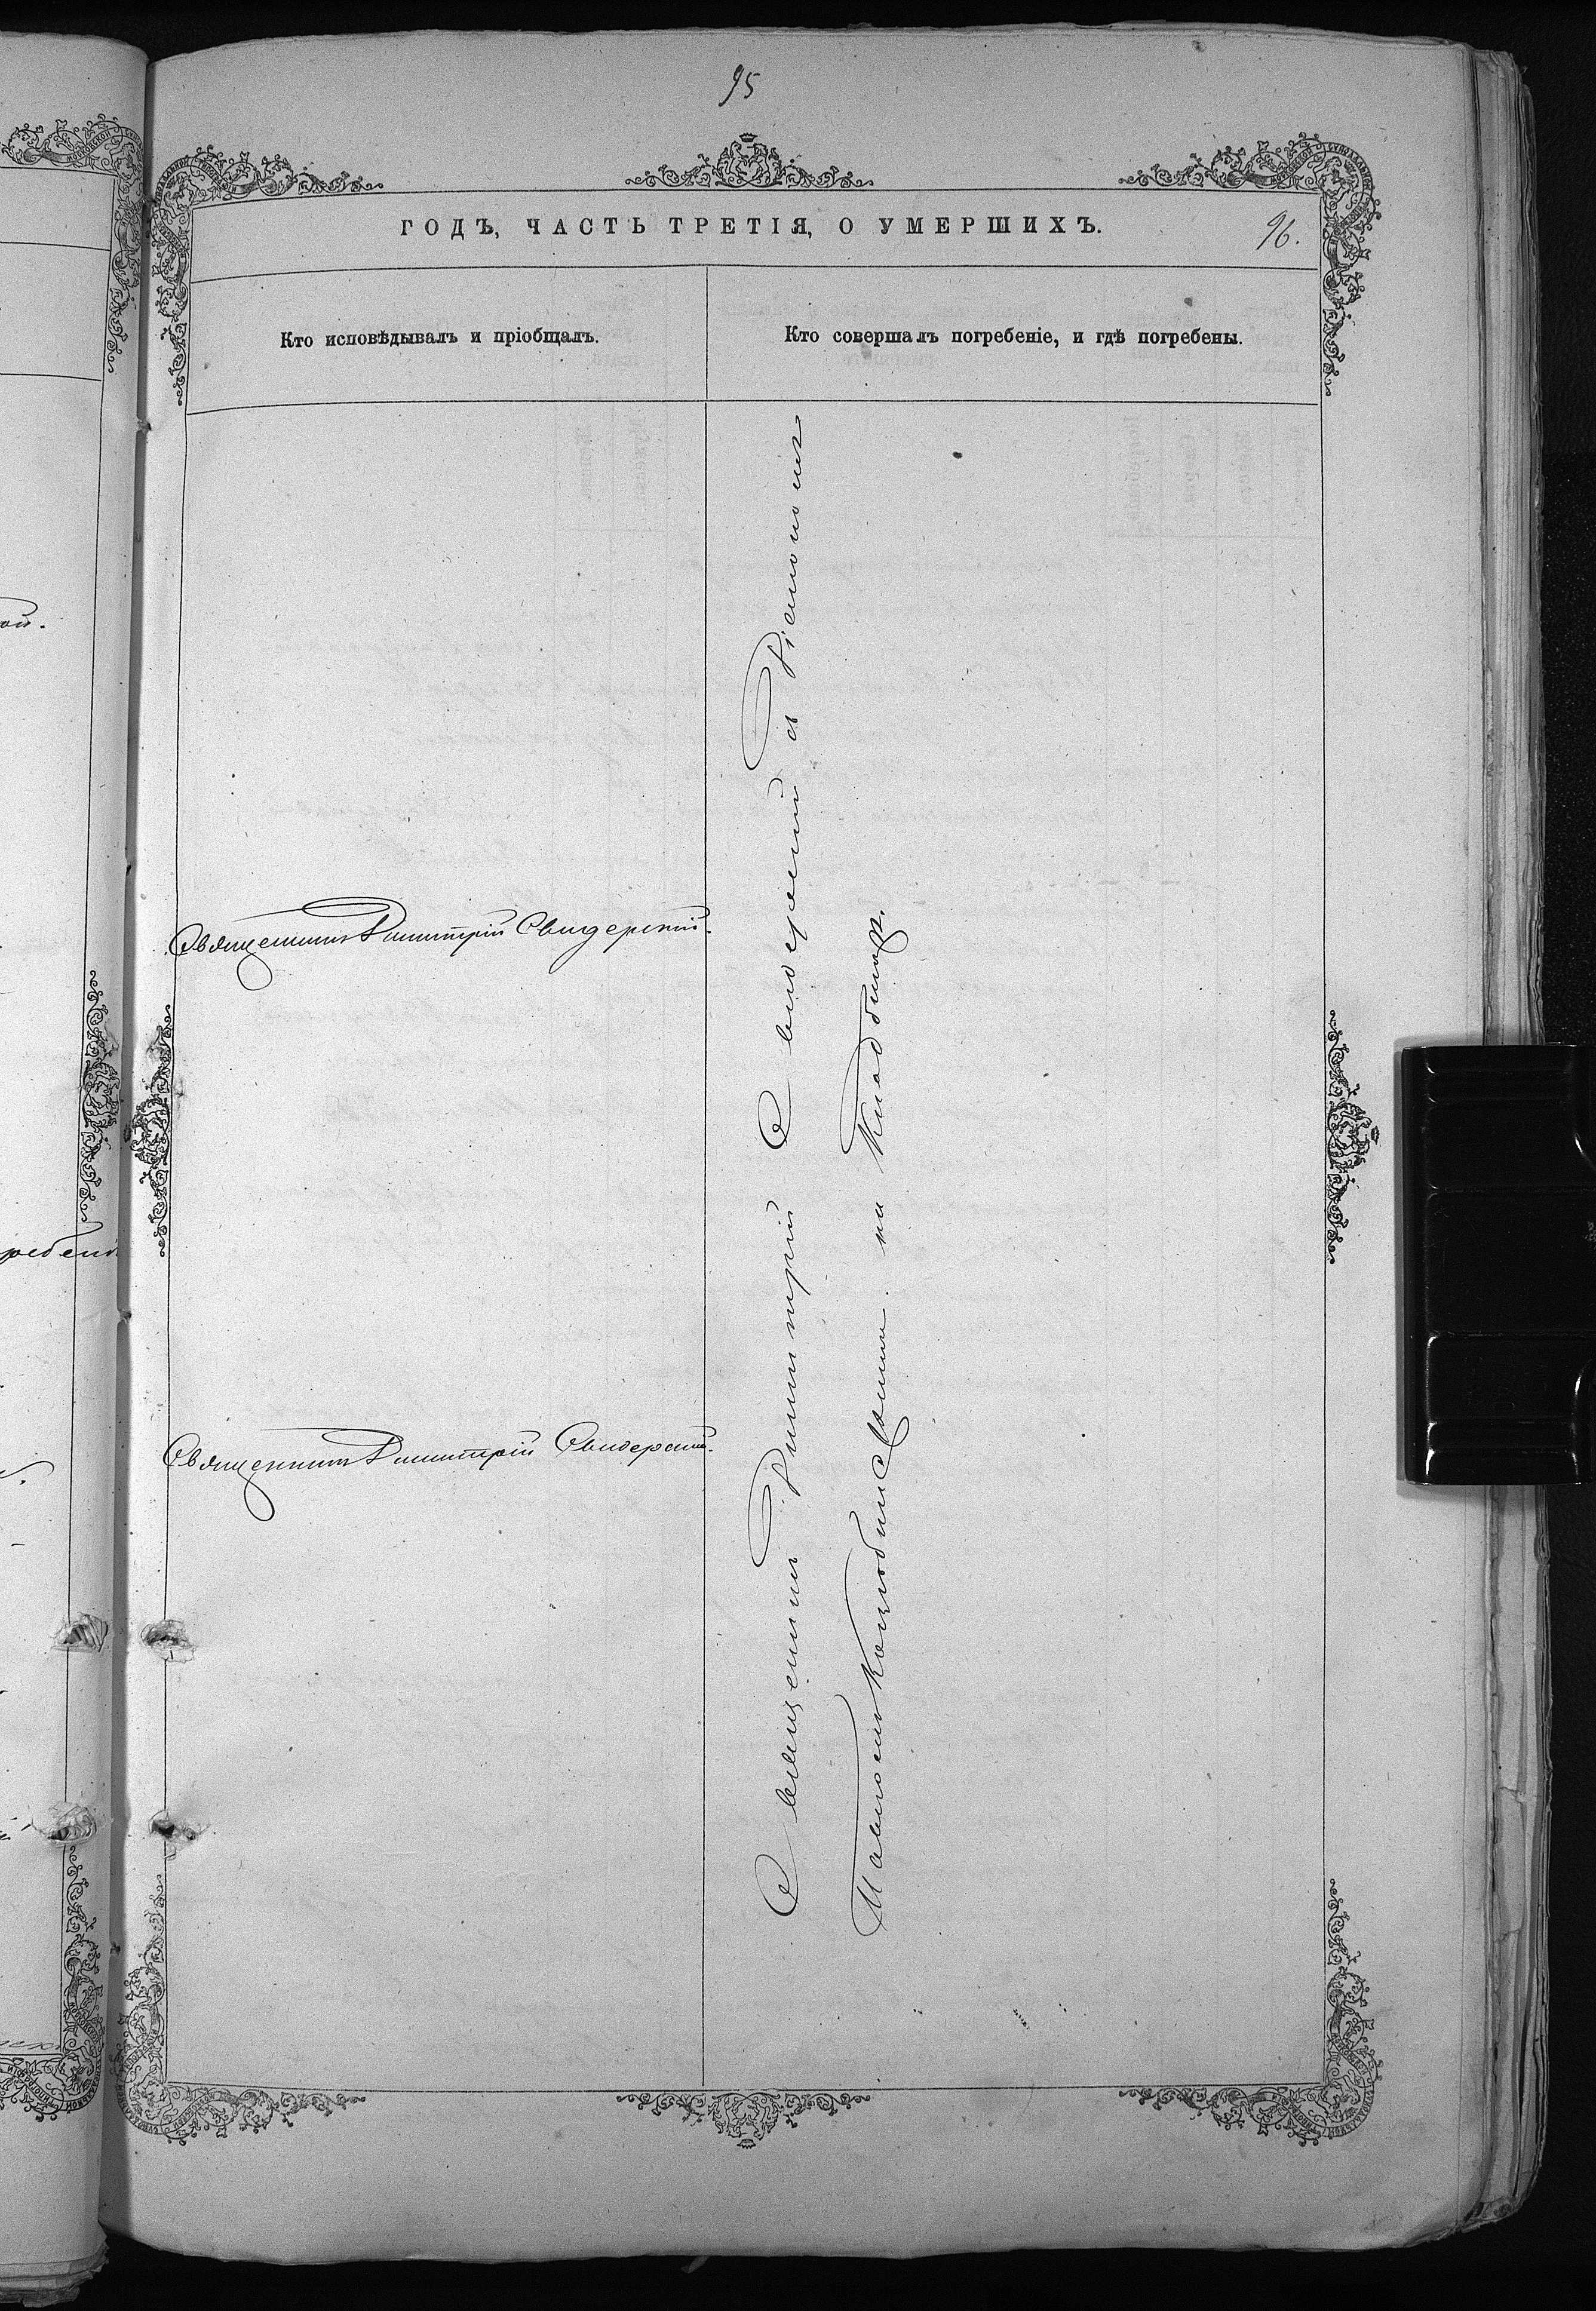 95
ГОДЪ, ЧАСТЬ ТРЕТІЯ, О УМЕРШИХЪ.
96.
Кто исповѣдывалъ и пріобщалъ.
Кто совершалъ погребеніе, и гдѣ погребены.
Священникъ Димитрій Свидерскій.
Священникъ Димитрій Свидерскій.
Священникъ Димитрій Свидерскій съ Діакономъ
на Кладбищѣ.